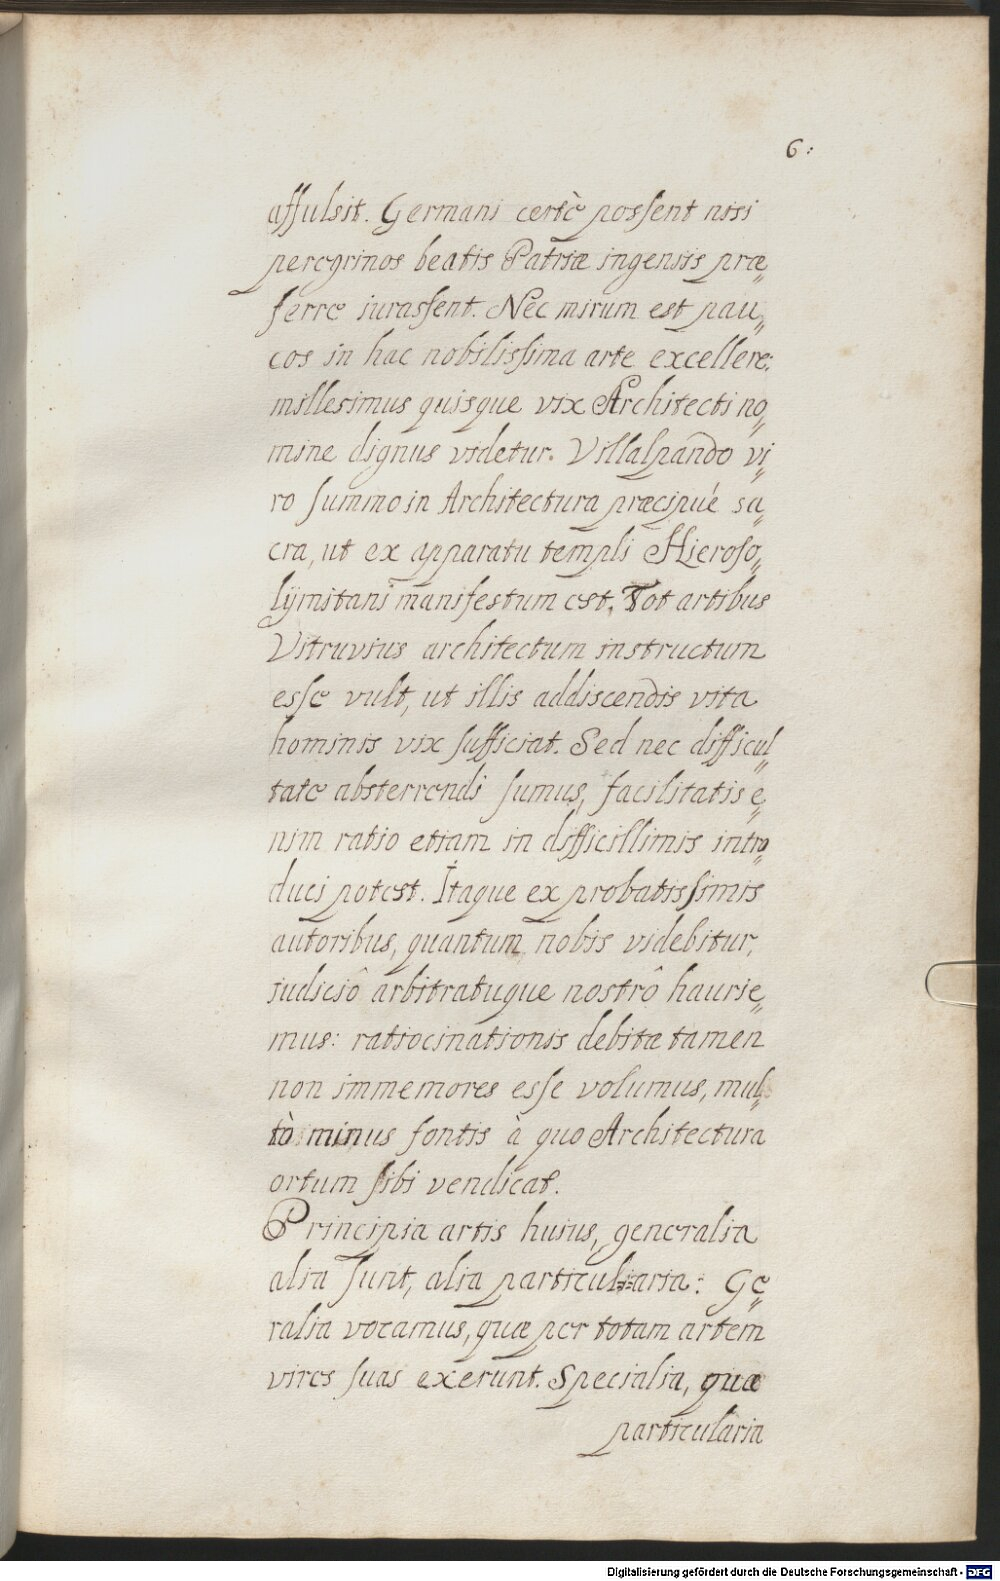 6:
affulsit. Germani certè possent nisi
peregrinos beatis Patriæ ingeniis præ„
ferre iurassent. Nec mirum est pau„
cos in hac nobilissima arte excellere:
millesimus quisque vix Architecti no„
mine dignus videtur. Villalpando vi„
ro summo in Architectura præcipué sa„
cra, ut ex apparatu templi Hieroso„
lÿmitani manifestum est. Tot artibus
Vitruvius architectum instructum
esse vult, ut illis addiscendis vita
hominis vix sufficiat. Sed nec difficul„
tate absterrendi sumus, facilitatis e„
nim ratio etiam in difficillimis intro„
duci potest. Itaque ex probatissimis
autoribus, quantum nobis videbitur,
iudiciô arbitratuque nostrô haurie„
mus: ratiocinationis debitæ tamen
non immemores esse volumus, mul„
tò minus fontis à quo Architectura
ortum sibi vendicat.
Principia artis huius, generalia
alia sunt, alia particularia: Ge„
ralia vocamus, quæ per totam artem
vires suas exerunt. Specialia, quæ
particularia
Digitalisierung gefördert durch die Deutsche Forschungsgemeinschaft - DFG